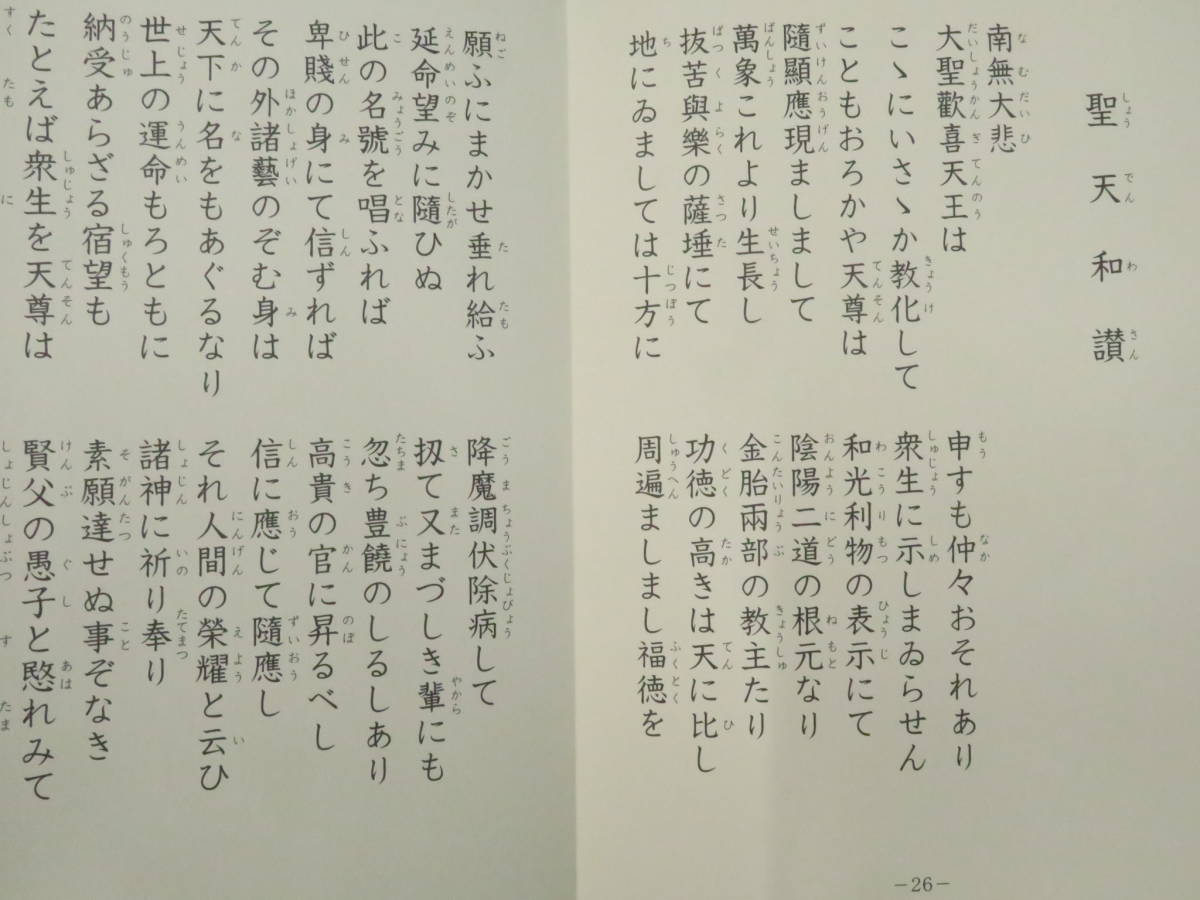 聖天和讃
南無大悲
大聖歡喜天王は
申すも仲々おそれあり
こゝにいさゝか教化して
衆生に示しまゐらせん
こともおろかや天尊は
和光利物の表示にて
隨顯應現ましまして
陰陽二道の根元なり
萬象これより生長し
金胎兩部の教主たり
抜苦與樂の薩埵にて
功徳の高きは天に比し
地にゐましては十方に
周遍ましまし福徳を
－26－
願ふにまかせ垂れ給ふ
降魔調伏除病して
延命望みに隨ひぬ
扨て又まづしき輩にも
此の名號を唱ふれば
忽ち豊饒のしるしあり
卑賤の身にて信ずれば
高貴の官に昇るべし
その外諸藝のぞむ身は
信に應じて隨應し
天下に名をもあぐるなり
それ人間の榮耀と云ひ
世上の運命もろともに
諸神に祈り奉り
納受あらざる宿望も
素願達せぬ事ぞなき
たとえば衆生を天尊は
賢父の愚子と愍れみて